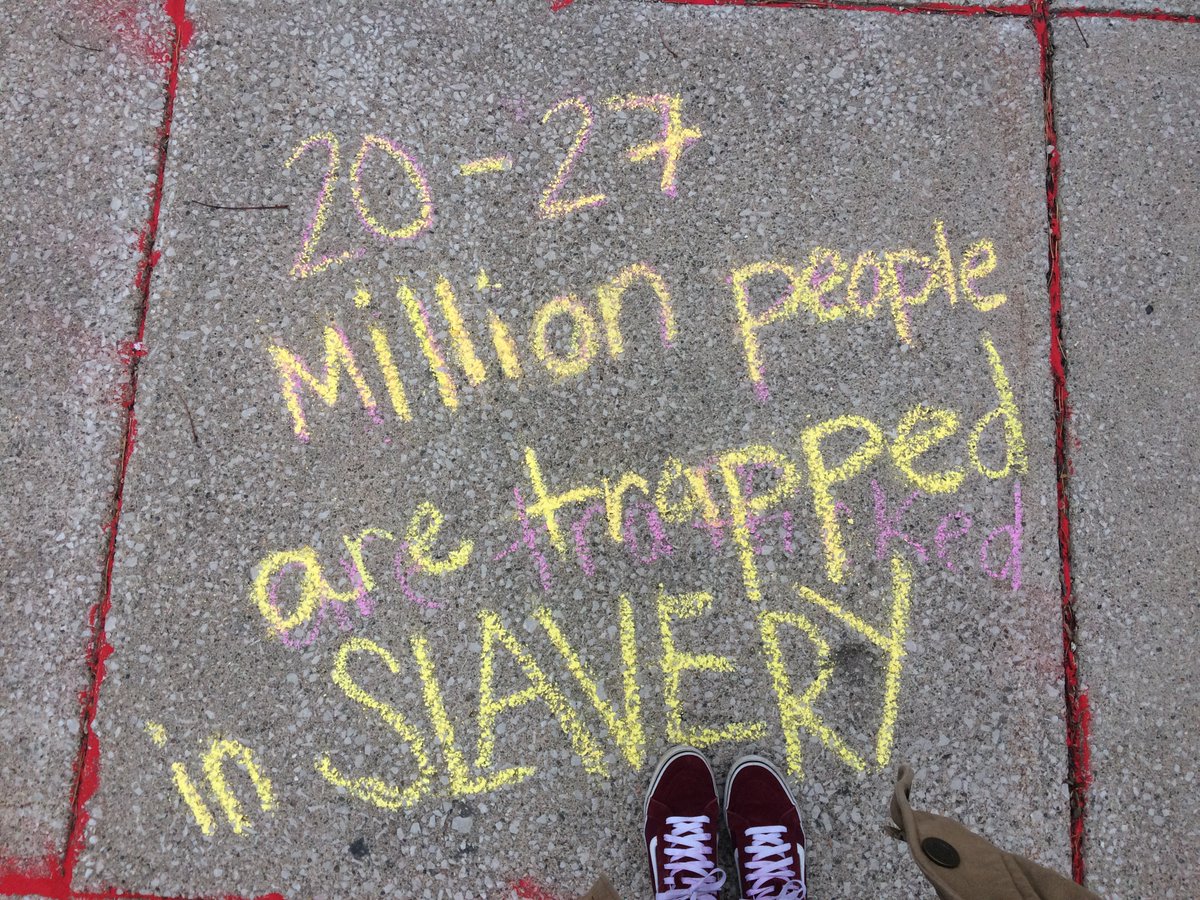 20-27
Million people
are trapped
in SLAVERY